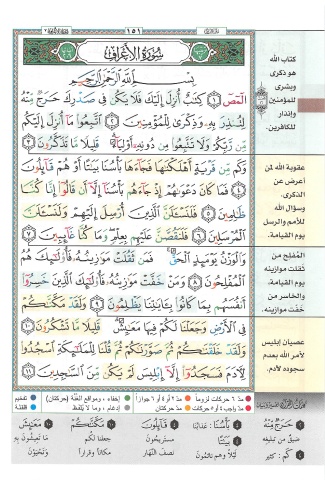 ١٥١
سورة الأعراف
بِسْمِ اللَّهِ الرَّحْمَٰنِ الرَّحِيمِ
الٓمٓصٓ ۝١ كِتَٰبٌ أُنزِلَ إِلَيْكَ فَلَا يَكُن فِى صَدْرِكَ حَرَجٌ مِّنْهُ
لِتُنذِرَ بِهِۦ وَذِكْرَىٰ لِلْمُؤْمِنِينَ ۝٢ ٱتَّبِعُوا۟ مَآ أُنزِلَ إِلَيْكُم
مِّن رَّبِّكُمْ وَلَا تَتَّبِعُوا۟ مِن دُونِهِۦٓ أَوْلِيَآءَ ۗ قَلِيلًا مَّا تَذَكَّرُونَ ۝٣
وَكَم مِّن قَرْيَةٍ أَهْلَكْنَٰهَا فَجَآءَهَا بَأْسُنَا بَيَٰتًا أَوْ هُمْ قَآئِلُونَ
۝٤ فَمَا كَانَ دَعْوَىٰهُمْ إِذْ جَآءَهُم بَأْسُنَآ إِلَّآ أَن قَالُوٓا۟ إِنَّا كُنَّا
ظَٰلِمِينَ ۝٥ فَلَنَسْـَٔلَنَّ ٱلَّذِينَ أُرْسِلَ إِلَيْهِمْ وَلَنَسْـَٔلَنَّ
ٱلْمُرْسَلِينَ ۝٦ فَلَنَقُصَّنَّ عَلَيْهِم بِعِلْمٍ ۖ وَمَا كُنَّا غَآئِبِينَ ۝٧
وَٱلْوَزْنُ يَوْمَئِذٍ ٱلْحَقُّ ۚ فَمَن ثَقُلَتْ مَوَٰزِينُهُۥ فَأُو۟لَٰٓئِكَ هُمُ
ٱلْمُفْلِحُونَ ۝٨ وَمَنْ خَفَّتْ مَوَٰزِينُهُۥ فَأُو۟لَٰٓئِكَ ٱلَّذِينَ خَسِرُوٓا۟
أَنفُسَهُم بِمَا كَانُوا۟ بِـَٔايَٰتِنَا يَظْلِمُونَ ۝٩ وَلَقَدْ مَكَّنَّٰكُمْ
فِى ٱلْأَرْضِ وَجَعَلْنَا لَكُمْ فِيهَا مَعَٰيِشَ ۗ قَلِيلًا مَّا تَشْكُرُونَ ۝١٠
وَلَقَدْ خَلَقْنَٰكُمْ ثُمَّ صَوَّرْنَٰكُمْ ثُمَّ قُلْنَا لِلْمَلَٰٓئِكَةِ ٱسْجُدُوا۟
لِءَادَمَ فَسَجَدُوٓا۟ إِلَّآ إِبْلِيسَ لَمْ يَكُن مِّنَ ٱلسَّٰجِدِينَ ۝١١
كتاب الله
هو ذكرى
وبشرى
للمؤمنين
وإنذار
للكافرين.
عقوبة الله لمن
أعرض عن
الذكرى.
وسؤال الله
للأمم والرسل
يوم القيامة.
المُفلح من
ثقلت موازينه
يوم القيامة.
والخاسر من
خفّت موازينه.
عصيان إبليس
لأمر الله بعدم
سجوده لآدم.
مد ٦ حركات لزوماً
مد ٢ أو ٤ أو ٦ جوازاً
إخفاء، ومواقع الغنة (حركتان)
تفخيم
مد واجب ٤ أو ٥ حركات
مد حركتان
إدغام، وما لا يُلفظ
قلقلة
حَرَجٌ مِّنْهُ
ضيق من تبليغه
كَم: كثير
بَأْسُنَا: عذابنا
بَيَٰتًا
ليلاً وهم نائمون
قَآئِلُونَ
مستريحون
نصف النهار
مَكَّنَّٰكُمْ
جعلنا لكم
مكاناً وقراراً
مَعَٰيِشَ
ما تعيشون به
وتحيَوْن